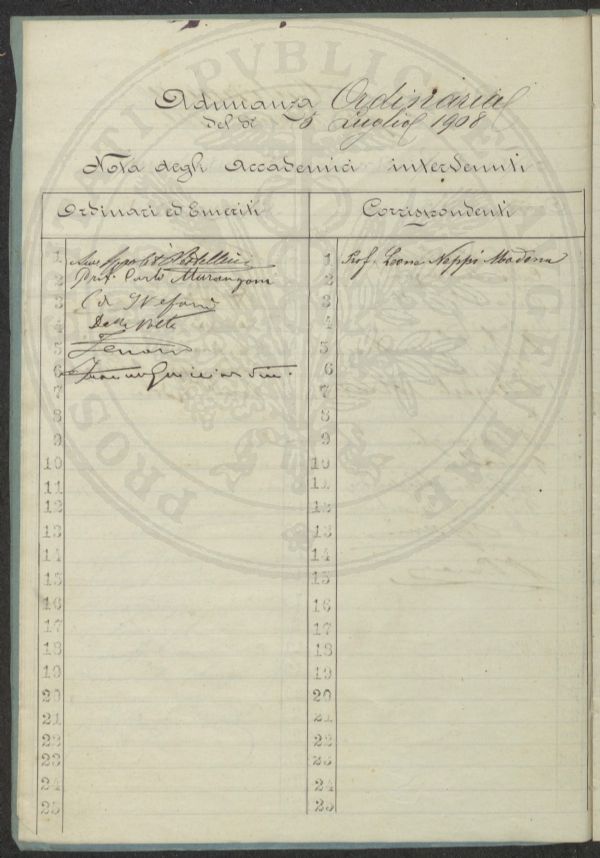 PROSPERITATI PUBLICAE AUGENDAE
Adunanza Ordinaria
del dì 5 Luglio 1908
Nota degli Accademici intervenuti
Ordinari ed Emeriti
Corrispondenti
1
2 Prof. Carlo Marangoni
3 C. de Stefani
4 Della Volta
5
6
7
8
9
10
11
12
13
14
15
16
17
18
19
20
21
22
23
24
25
1 Prof. Leone Neppi Modona
2
3
4
5
6
7
8
9
10
11
12
13
14
15
16
17
18
19
20
21
22
23
24
25